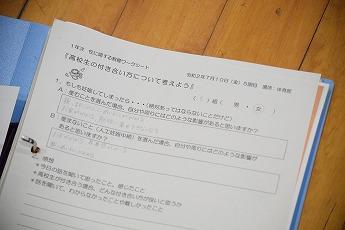 1年次 性に関する教育ワークシート
令和2年7月10日(金)5限目 場所:体育館
『高校生の付き合い方について考えよう』
( )組( 男 ・ 女 )
1. もしも妊娠してしまったら・・・(絶対あってはならないことだけど)
A. 産むことを選んだ場合、自分や周りにはどのような影響があると思いますか?
B. 産まないこと(人工妊娠中絶)を選んだ場合、自分や周りにはどのような影響が
あると思いますか?
○ 感想
*今日の話を聞いて思ったこと、感じたこと
*高校生が付き合う場合、どんな付き合い方が良いと思うか
*話を聞いて、わからなかったことや難しかったこと